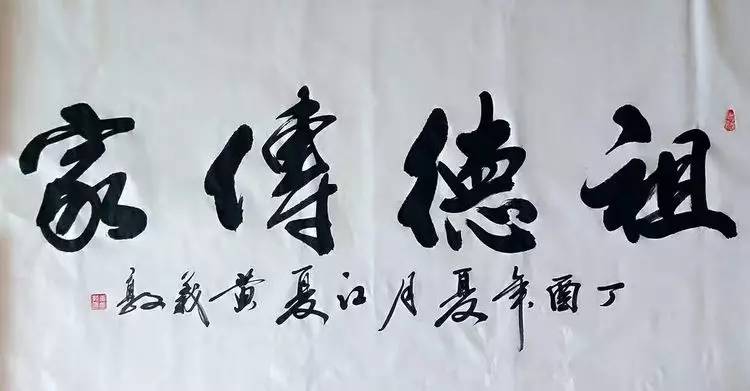 祖德傳家
丁酉年夏月江夏黃義敦